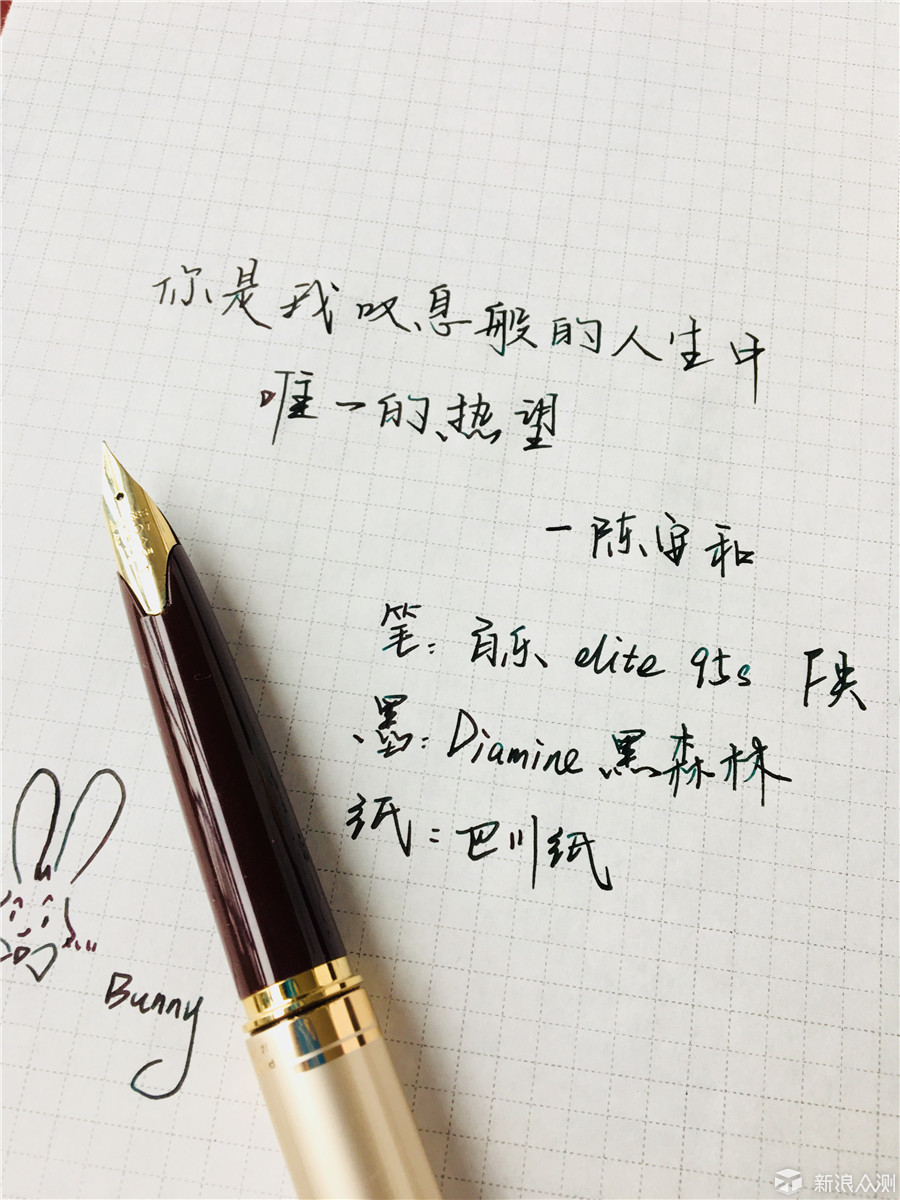 你是我叹息般的人生中
唯一的热望
一陈宇和
笔：百乐 elite 95s F尖
墨：Diamine 黑森林
纸：巴川纸
Bunny
新浪众测